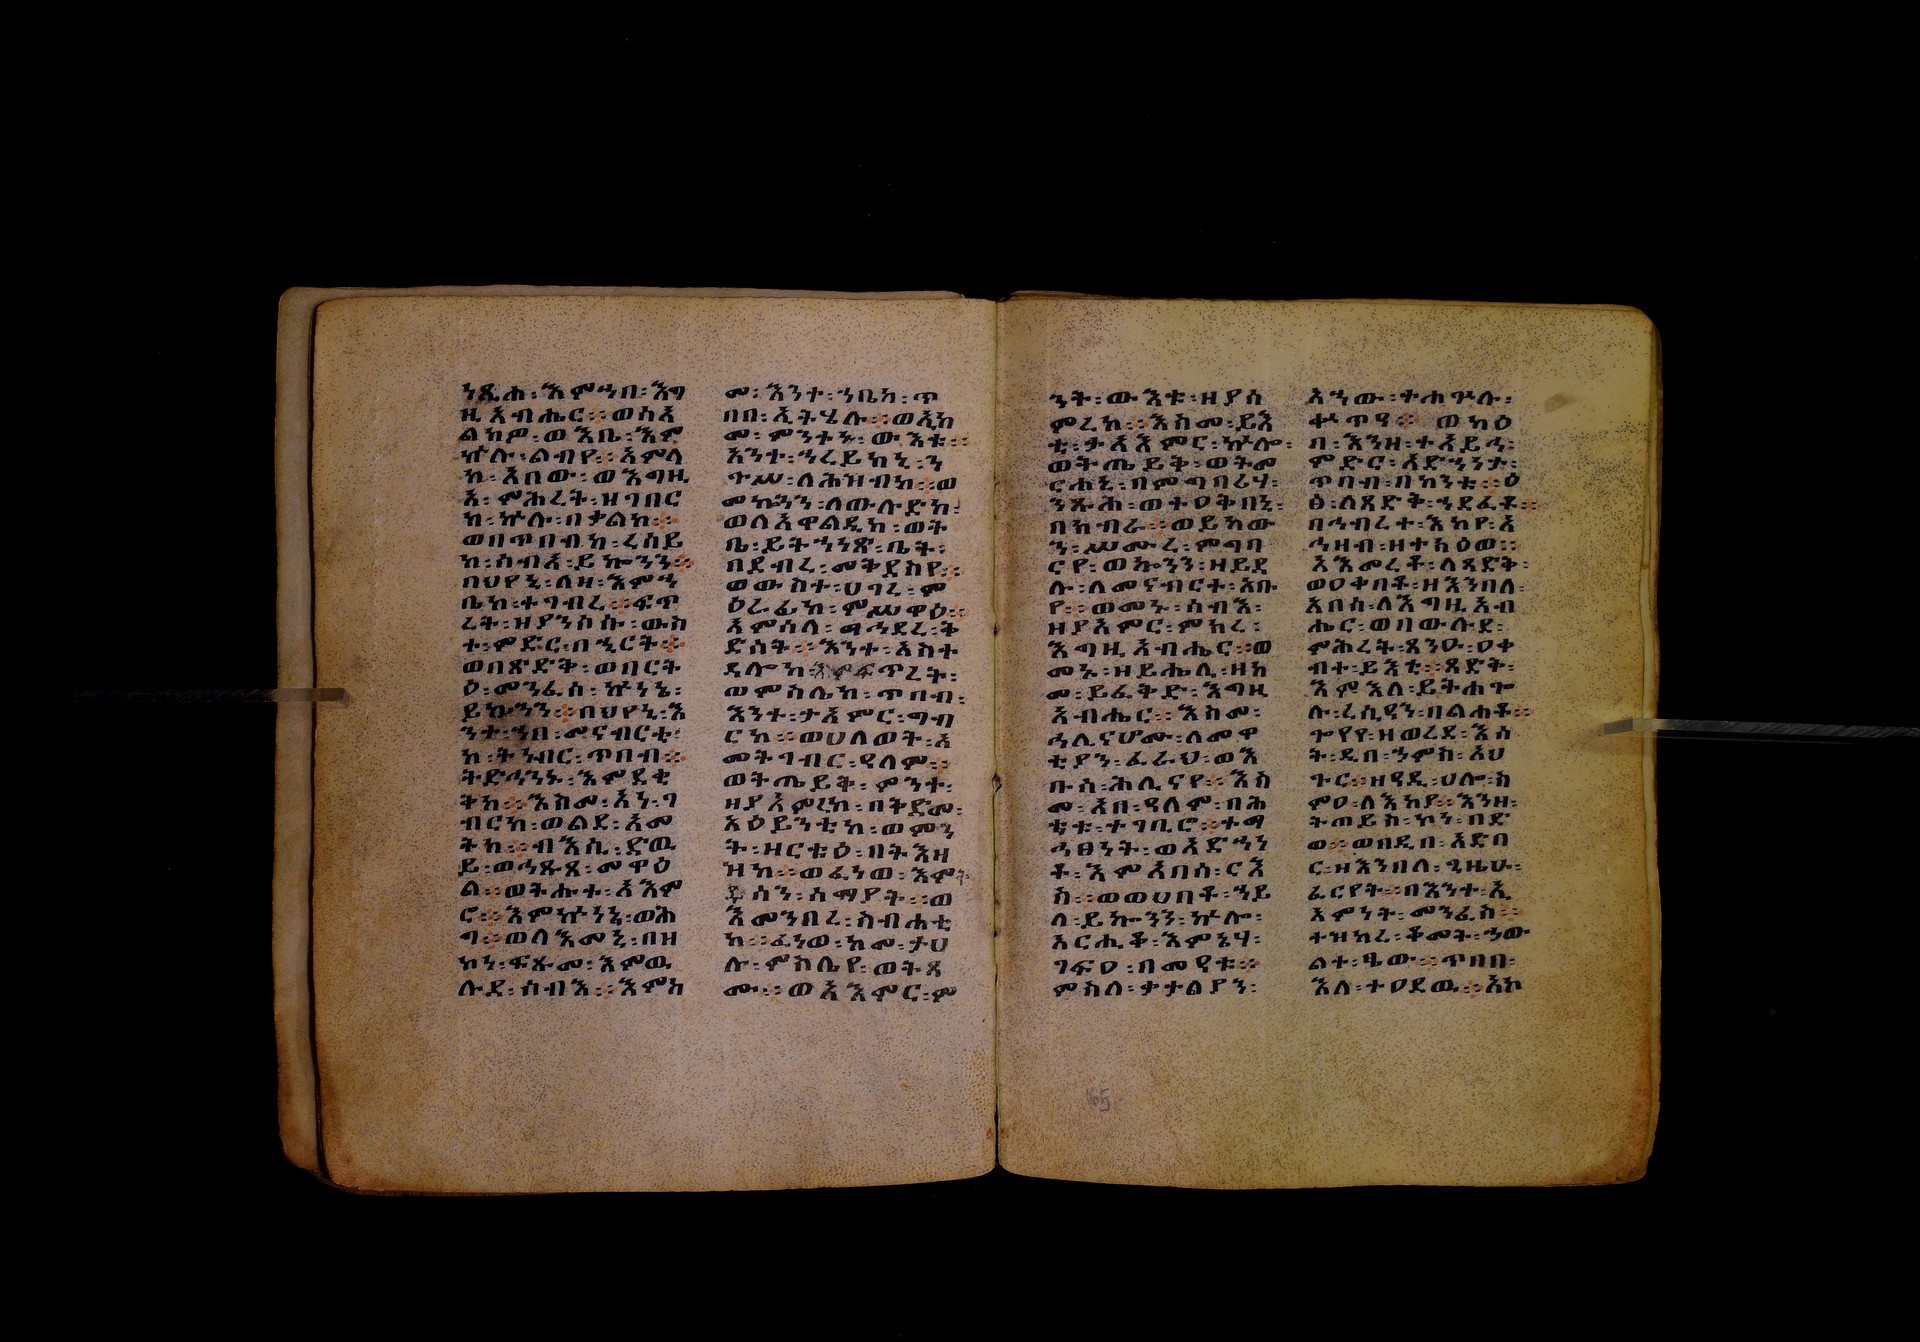 ንጺሐ፡እምኀበ፡እግ
ዚአብሔር፡፡ወሰአ
ልክዎ፡ወእቤ፡እም
ኵሉ፡ልብየ፡፡አምላ
ከ፡አበው፡ወእግዚ
አ፡ምሕረት፡ዘገበር
ከ፡ኵሉ፡በቃልከ፡፡
ወበጥበብከ፡ረሰይ
ከ፡ሰብአ፡ይኰንን፡፡
በህየኒ፡ለዘ፡እምኀ
ቤከ፡ተገብረ፡፡ፍጥ
ረት፡ዘያንሶሱ፡ውስ
ተ፡ምድር፡በኂርት፡፡
ወበጽድቅ፡ወበርት
ዕ፡መንፈስ፡ኵነኔ፡
ይኰንን፡፡በህየኒ፡እ
ንተ፡ኀበ፡መናብርቲ
ከ፡ትነብር፡ጥበብ፡፡
ትድኀንኑ፡እምደቂ
ቅከ፡፡እስመ፡አነ፡ገ
ብርከ፡ወልደ፡አመ
ትከ፡፡ብእሲ፡ድዉ
ይ፡ወኀጹጸ፡መዋዕ
ል፡፡ወትሑተ፡አእም
ሮ፡፡እምኵነኔ፡ወሕ
ግ፡፡ወለእመኒ፡በዘ
ኮነ፡ፍጹመ፡እምዉ
ሉደ፡ሰብእ፡፡እምከ
መ፡እንተ፡ኀቤከ፡ጥ
በበ፡ኢትሄሉ፡፡ወኢከ
መ፡ምንተኑ፡ውእቱ፡፡
አንተ፡ኀረይከኒ፡ን
ጉሠ፡ለሕዝብከ፡፡ወ
መኰንን፡ለውሉድከ፡
ወለአዋልዲከ፡ወት
ቤ፡ይትኀነጽ፡ቤት፡
በደብረ፡መቅደስየ፡፡
ወውስተ፡ሀገረ፡ም
ዕራፊከ፡ምሠዋዕ፡፡
አምሳለ፡ማኅደረ፡ቅ
ድሳት፡፡እንተ፡አስተ
ዳሎከ፡እምፍጥረት፡
ወምስሌከ፡ጥበብ፡
እንተ፡ታአምር፡ግብ
ርከ፡፡ወሀለወት፡አ
መትገብር፡ዓለም፡፡
ወትጤይቅ፡ምንት፡
ዘያአምረከ፡በቅድመ፡
አዕይንቲከ፡ወምን
ት፡ዘርቱዕ፡በትእዛ
ዝከ፡፡ወፈነወ፡እምቅ
ዱሳን፡ሰማያት፡፡ወ
እመንበረ፡ስብሐቲ
ከ፡፡ፈነወ፡ከመ፡ታሀ
ሉ፡ምስሌየ፡ወትጻ
ሙ፡፡ወአእምር፡ም
ንት፡ውእቱ፡ዘያሰ
ምረከ፡፡እስመ፡ይእ
ቲ፡ታአአምር፡ኵሎ፡
ወትጤይቅ፡ወትመ
ርሐኒ፡በምግባሪሃ፡
ንጹሕ፡ወተዐቅበኒ፡
በክብራ፡፡ወይከው
ን፡ሡሙረ፡ምግባ
ርየ፡ወኰንን፡ዘይደ
ሉ፡ለመናብርተ፡አቡ
የ፡፡ወመኑ፡ሰብእ፡
ዘያአምር፡ምክረ፡
እግዚአብሔር፡፡ወ
መኑ፡ዘይሔሊ፡ዘከ
መ፡ይፈቅድ፡እግዚ
አብሔር፡፡እስመ፡
ሓሊናሆሙ፡ለመዋ
ቲያን፡ፈራህ፡ወእ
ቡስ፡ሕሊናየ፡፡እስ
መ፡አበ፡ዓለም፡በሕ
ቲቱ፡ተገቢሮ፡፡ተማ
ኅፀነት፡ወአድኀነ
ቶ፡እምአበሳ፡ርእ
ስ፡፡ወወሀበቶ፡ኀይ
ለ፡ይኰንን፡ኵሎ፡
አርሒቆ፡እምኔሃ፡
ገፍዐ፡በመዓቱ፡፡
ምስለ፡ቀታልያን፡
እኀው፡ተሐጕሉ፡
ቍጥዓ፡፡ወከዕ
በ፡እንዘ፡ተአይኀ፡
ምድር፡አድኀነታ፡
ጥበብ፡በከንቱ፡፡ዕ
ፅ፡ለጻድቅ፡ኀደፈቶ፡፡
በኅብረተ፡እከየ፡አ
ሕዛብ፡ዘተክዕወ፡፡
አእመረቶ፡ለጻድቅ፡
ወዐቀበቶ፡ዘእንበለ፡
አበሳ፡ለእግዚአብ
ሔር፡ወበውሉደ፡
ምሕረት፡ጸንዑ፡ዐቀ
ብተ፡ይእቲ፡፡ጻድቅ፡
እምእለ፡ይትሐጐ
ሉ፡ረሲዓን፡በልሐቶ፡፡
ጐየየ፡ዘወረደ፡እሳ
ት፡ዲበ፡ኀምስ፡አህ
ጉር፡፡ዘዓዲ፡ሀሎ፡ስ
ምዐ፡ለእከያ፡፡እንዘ፡
ትጠይስ፡ኮነ፡በድ
ወ፡፡ወበዲበ፡አድባ
ር፡ዘእንበለ፡ጊዜሁ፡
ፈርየት፡፡በእንተ፡ኢ
አምነት፡መንፈስ፡፡
ተዝከረ፡ቆመት፡ኀው
ልተ፡ፄው፡፡ጥበበ፡
እለ፡ተዐደዉ፡፡አኮ
65